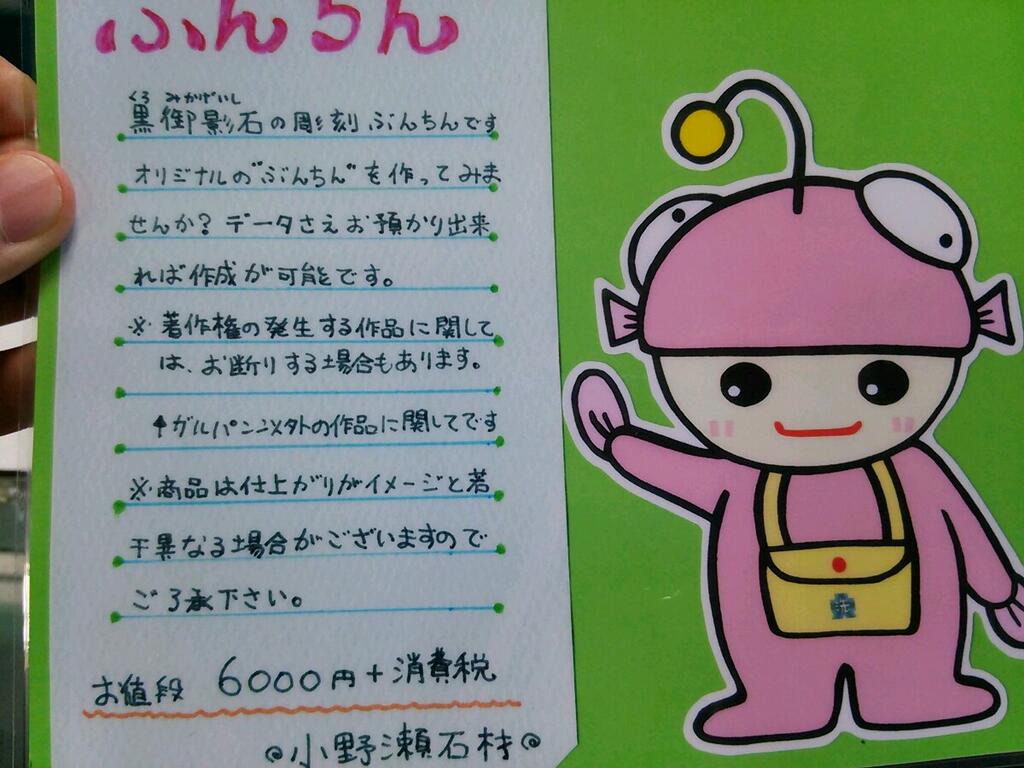 ぶんちん
くろ みかげいし
黒御影石の彫刻ぶんちんです
オリジナルの"ぶんちん"を作ってみま
せんか？データさえお預かり出来
れば作成が可能です。
※著作権の発生する作品に関して
は、お断りする場合もあります。
↑ガルパン以外の作品に関してです
※商品は仕上がりがイメージと若
干異なる場合がございますので
ご了承下さい。
お値段 6000円+消費税
小野瀬石材